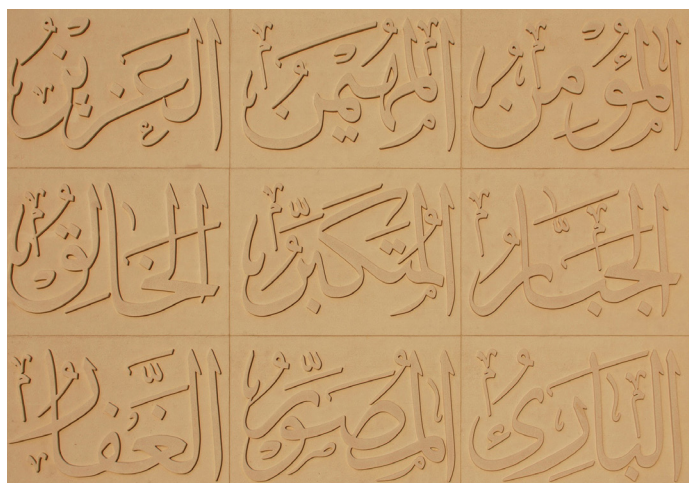 المؤمن المهيمن العزيز
الجبار المتكبر الخالق
البارئ المصور الغفار